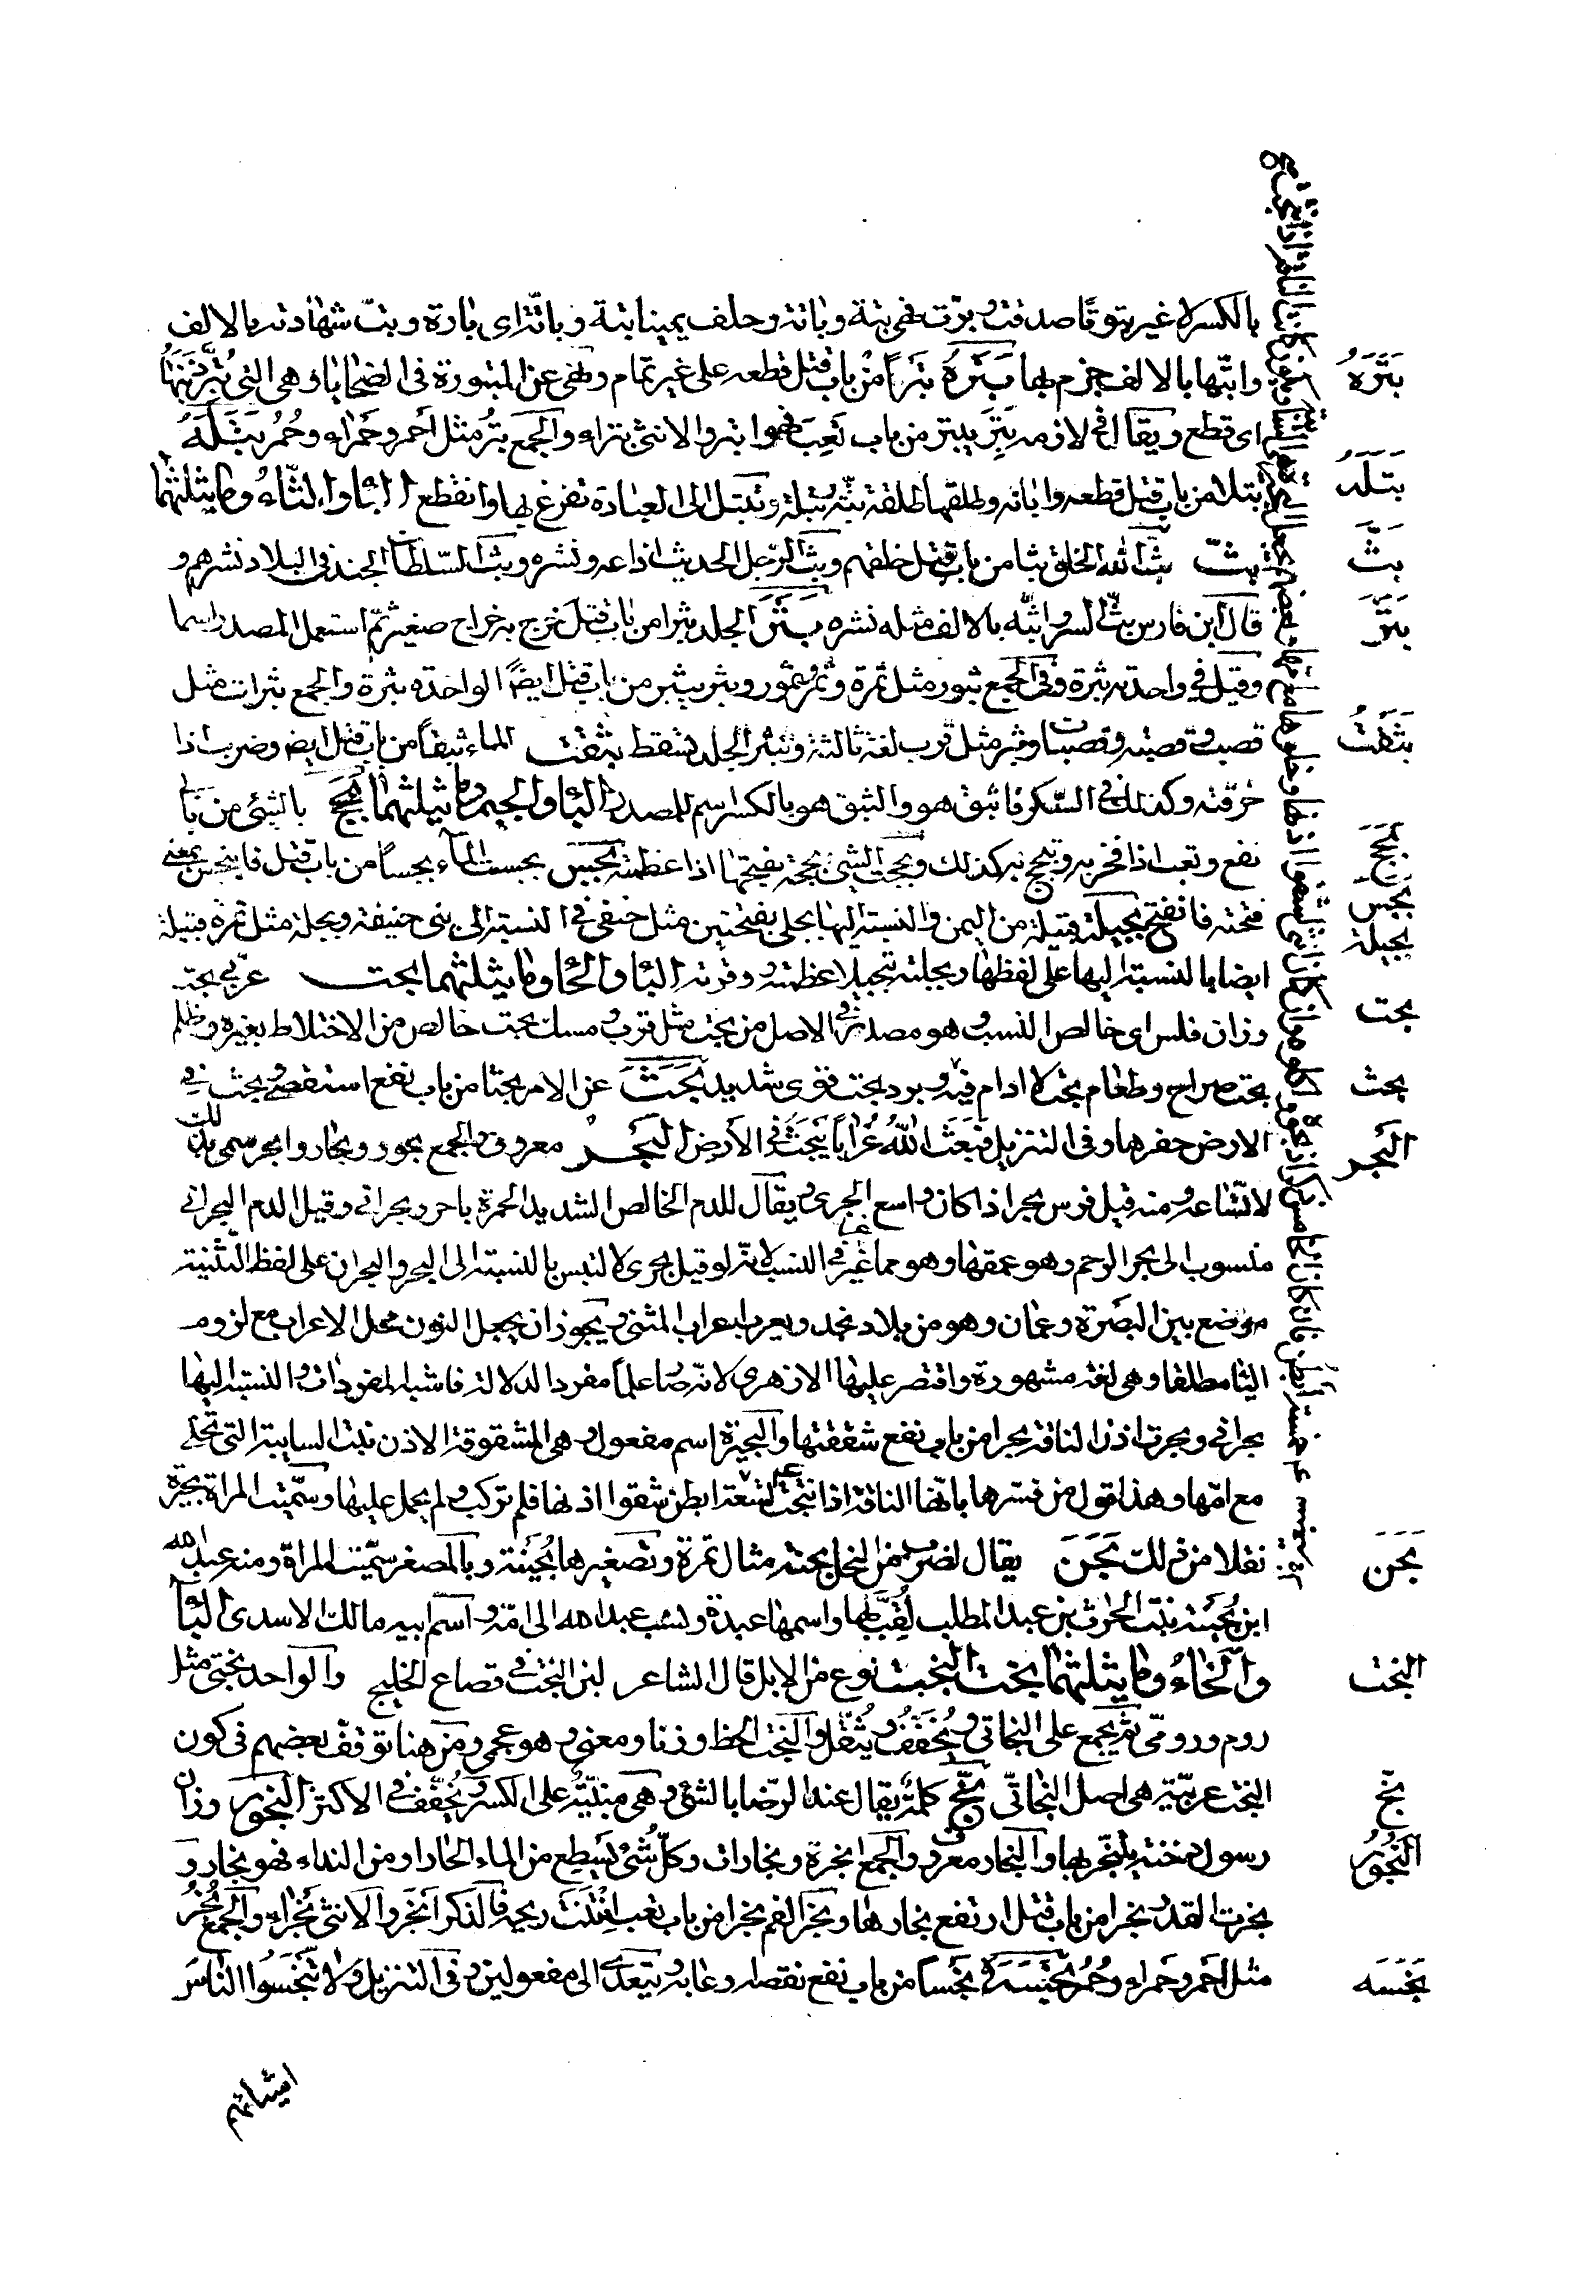 بالكسر لا غير بتوتا صدقت وبرت فهي بتة وباتة وحلف يمينا بتة وباتة اى بارة وبت شهادته بالالف
بَتَرَهُ
وابتها بالالف جزم بها بَتَرَهُ بَتَراً من باب قتل قطعه على غير تمام ونهى عن المبتورة فى الضحايا وهى التى بُتر ذنبها
اى قطع ويقال فى لازمه بَتِرَ يبتر من باب تَعِبَ فهو ابتر والانثى بتراء والجمع بُتر مثل احمر وحمراء وحُمُر بَتَلَهُ
بَتَلَهُ
بتلا من باب قتل قطعه وابانه وطلقها طلقة بتّة بتلة وتبتل الى العبادة تفرغ لها وانقطع الباء والثّاءُ وما يثلثهما
بَثَّ
بثّ بثّ الله الخلق بثا من باب قتل خلقهم وبث الرّجل الحديث اذاعه ونشره وبث السّلطان الجند فى البلاد نشرهم و
بَثَرَ
قال ابن فارس بثّ السر وابثّه بالالف مثله نشره بَثَرَ الجلد بثرا من باب قتل خرج به خراج صغير ثمّ استعمل المصدر اسما
وقيل فى واحدته بثرة وفى الجمع بثور مثل تمرة وتمر وتمور وبثر يبثر من باب قتل ايضًا الواحدة بثرة والجمع بثرات مثل
بَثَقْتُ
قصب وقصبة وقصبات وبثر مثل قرب لغة ثالثة وتبثر الجلد تنقط بثقت الماء بثقاً من باب قتل ايض وضرب اذا
خرقته وكذلك فى السّكر فانبثق هو والبثق هو بالكسر اسم للمصدر الباء والجيم وما يثلثهما بَجَحَ بالشئ من باب
بَجَحَ
نفع وتعب اذا فخر به وتبجح به كذلك وبجحت الشئ بجحه بفتحها اذا عظمته بَجَسَ بجست الماء بجساً من باب قتل فانبجس بمعنى
بَجَسَ
فتحته فانفتح بجيلة قبيلة من اليمن والنسبة اليها بجلى بفتحتين مثل حنفى فى النسبة الى بنى حنيفة وبجلة مثل تمرة قبيلة
بجيلة
ايضا بالنسبة اليها على لفظها وبجلته تبجيلا عظمته ووقرته الباء والحاء وما يثلثهما بحت عربىّ بحت
بحت
وزان فلس اى خالص النسب وهو مصدر فى الاصل من بحت مثل قرب ومسك بحت خالص من الاختلاط بغيره وظلم
بحث
بحت صراح وطعام بحت لا ادام فيه وبرد بحت قوى شديد بَحَثَ عن الامر بحثا من باب نفع استقصى وبحث فى
البَحر
الارض حفرها وفى التنزيل فَبَعَثَ اللّٰهُ غُرَاباً يَبْحَثُ فى الارض البَحرُ معروف والجمع بحور وبحار وابحر سمى بذلك
لاتّساعه ومنه قيل فرس بحر اذا كان واسع الجرى ويقال للدم الخالص الشديد الحمرة باحر وبحرانى وقيل الدم البحرانى
منسوب الى بحر الرحم وهو عمقها وهو مما غيّر فى النسب لانّه لو قيل بحرى لالتبس بالنسبة الى البحر والبحران على لفظ التّثنية
موضع بين البصرة وعمان وهو من بلاد نجد ويعرب اعراب المثنى ويجوز ان يجعل النون محل الاعراب مع لزوم
اليا مطلقا وهى لغة مشهورة واقتصر عليها الازهرى لانّه صار علما مفرد الدلالة فاشبه المفردات والنسبة اليها
بحرانى وبحرت اذن الناقة بحرا من باب نفع شققتها والبحيرة اسم مفعول وهى المشقوقة الاذن بنت السايبة التى تخلى
مع امّها وهذا قول من فسرها بانّها الناقة اذا نتجت خمسة ابطن شقوا اذنها فلم تركب ولم يحمل عليها وسمّيت المراة بحيرة
بَحَنَ
نقلا من ذلك بَحَنَ يقال لضرب من النخل بحنة مثال تمرة وتصغيرها بُحَيْنَة وبالمصغر سمّيت المراة ومنه عبد الله
ابن بُحينة بنت الحرث بن عبد المطلب لُقِّب بها واسمها عبدة ونسب عبد الله الى امّه واسم ابيه مالك الاسدى الباء
البخت
والخاءُ وما يثلثهما بخت البخت نوع من الابل قال الشاعر لبن البخت فى قصاع الخليج والواحد بختى مثل
روم ورومىّ ثم يجمع على البخاتى ويُخَفَّف ويُثقّل والبخت الحظ وزنا ومعنى وهو عجمى ومن هنا توقّف بعضهم فى كون
بخّ
البخت عربيّة هى اصل البخاتىّ بخّ كلمة يقال عند الرّضا بالشئ وهى مبنيّة على الكسر ويُخفّف فى الاكثر البَخُور وزان
البَخُورُ
رسول دخنة يتبخّر بها والبخار معروف والجمع ابخرة وبخارات وكلّ شئ يسطع من الماء الحار او من النداء فهو بخار و
بخرت القدر بخرا من باب قتل ارتفع بخارها وبخر الفم بخرا من باب تعب انتنت ريحه فالذكر ابخر والانثى بخراء والجمع بُخْرُ
بَخَسَه
مثل احمر وحمراء وحُمُر بَخَسَهُ بخساً من باب نفع نقصه وعابه ويتعدى الى مفعولين وفى التنزيل ولا تَبْخَسُوا الناسَ
اشيائهم